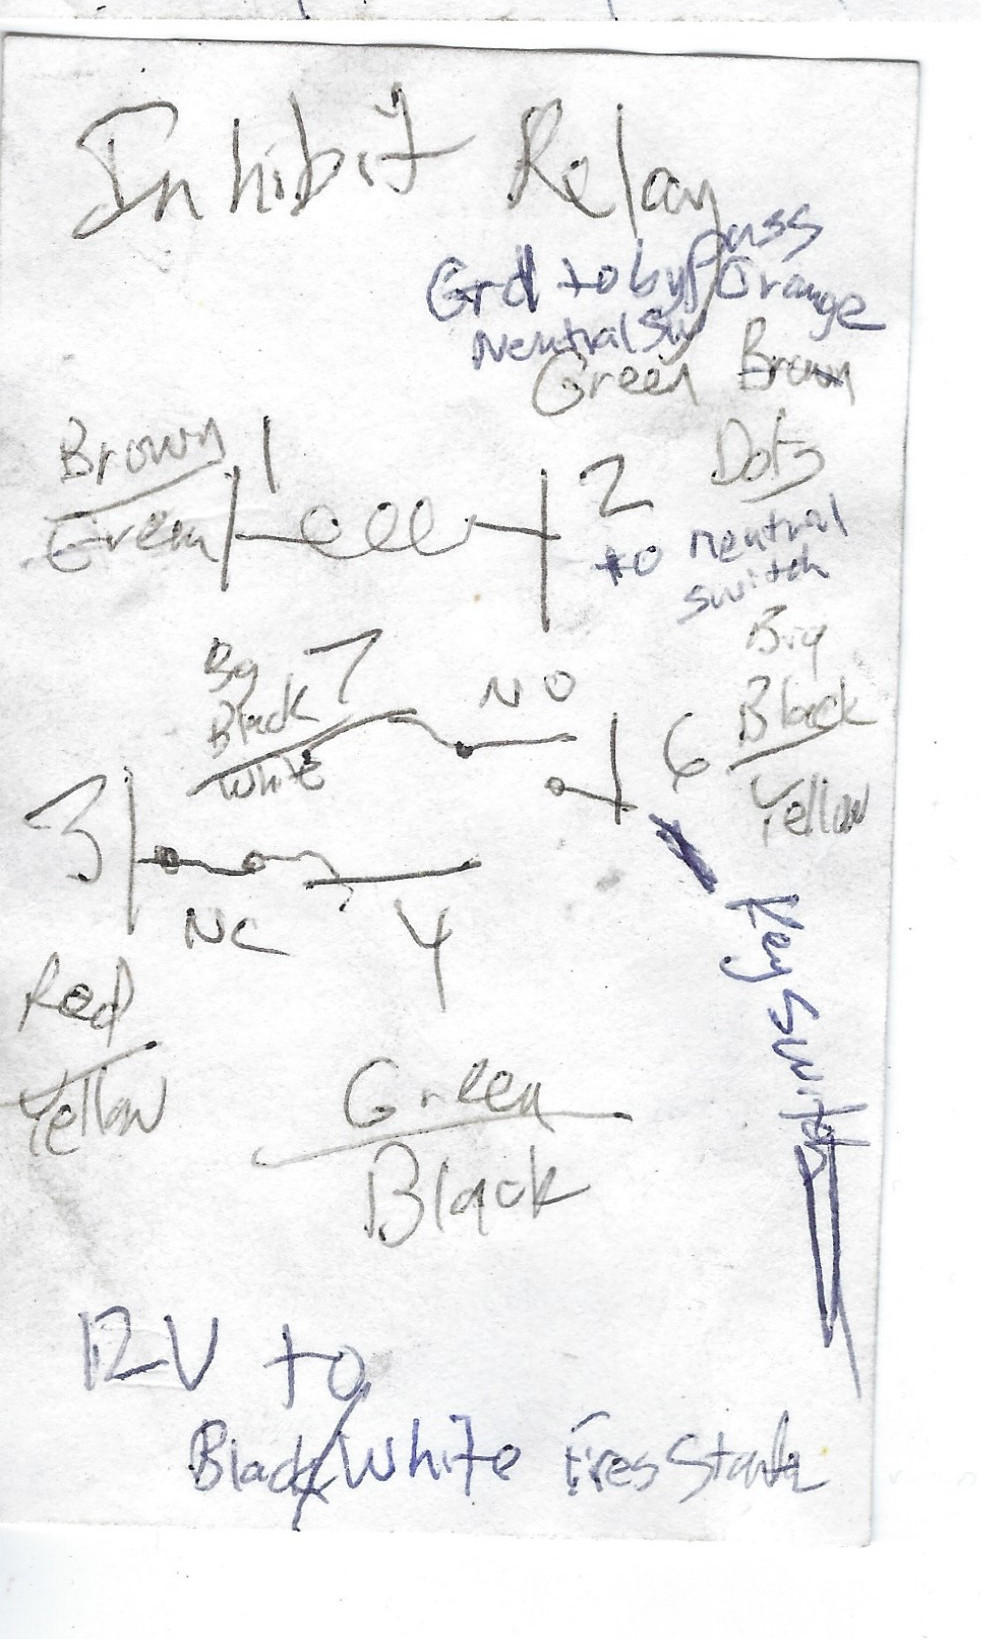 Inhibit Relay
Grd to bypass
Orange
Neutral Sw
Green Brown
Dots
Brown 1
Green
2
to neutral
switch
Big 7
Black
White
NO
6
Big
Black
Yellow
3
NC
4
Key Switch
Red
Yellow
Green
Black
12V to
Black/White Fires Starter